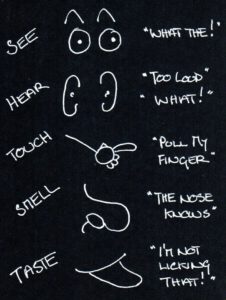 SEE
"WHAT THE!"
HEAR
"TOO LOUD"
"WHAT!"
TOUCH
"PULL MY
FINGER"
SMELL
"THE NOSE
KNOWS"
TASTE
"I'M NOT
LICKING
THAT!"